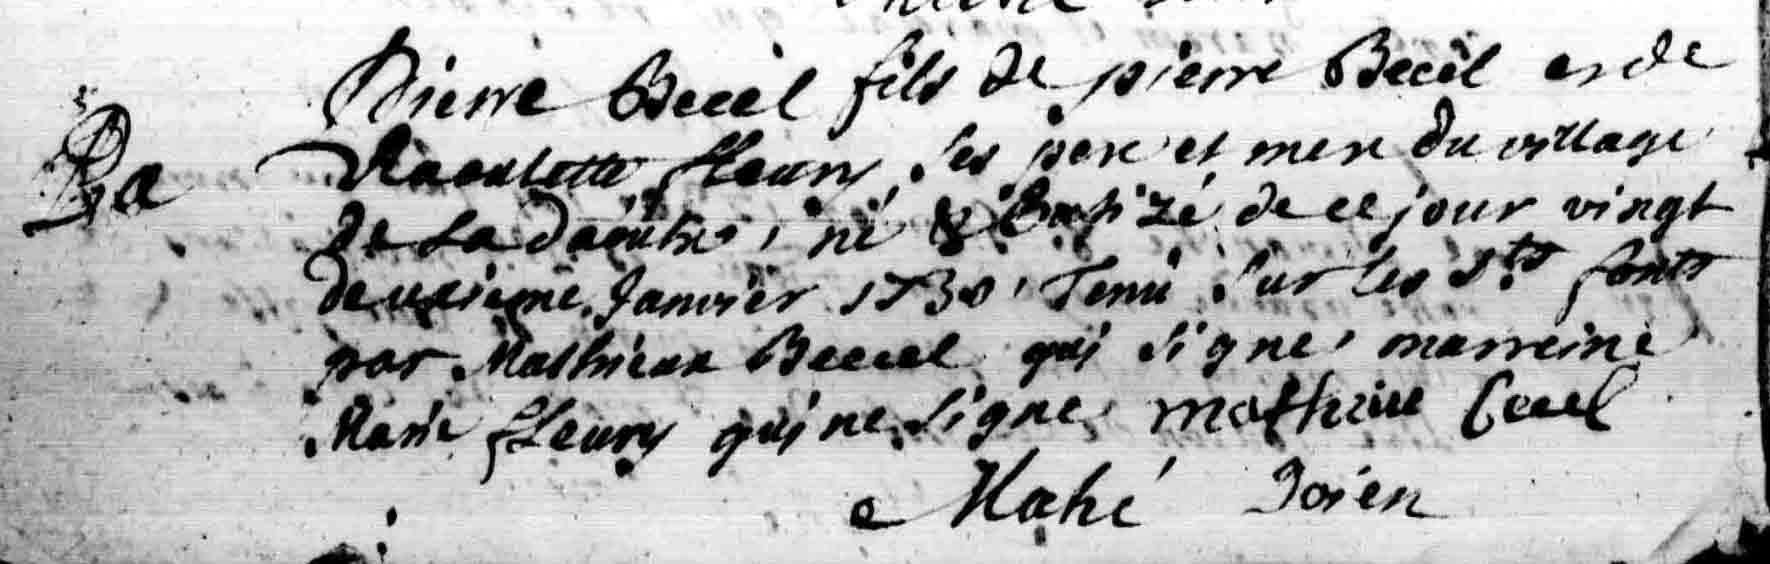 Ba
Pierre Becel fils de pierre Becel et de
Raoulette fleury ses pere et mere du village
de La né & batizé de ce jour vingt
deuxieme Janvier 1730 Tenu sur les Sts fonts
par Mathieux Beccel qui signe, marreine
Marie fleury qui ne signe mathieu becel
Mahé